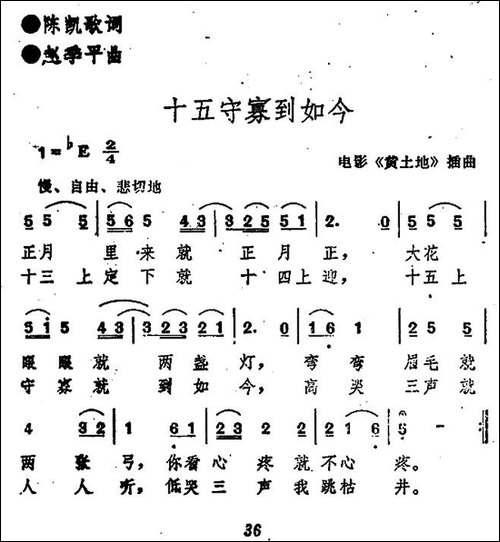 ●陈凯歌词
●赵季平曲
十五守寡到如今
1=♭E 2/4
电影《黄土地》插曲
慢、自由、悲切地
5 5 5 | 5 6 5 4 3 | 3 2 5 5 1 | 2. 0 | 5 5 5 |
正月 里来就 正月正, 大花
十三 上定下就 十四上迎, 十五上
5 1 5 4 3 | 3 2 3 2 1 | 2. 0 | 1 6 1 | 2 5 5 |
眼眼就 两盏灯, 弯弯 眉毛就
守寡就 到如今, 高哭 三声就
4 3 2 | 1 6 1 | 2 3 2 2 | 2 1 6 | 5 - :||
两张弓, 你看心疼就不心疼。
人人听, 低哭三声我跳枯井。
36